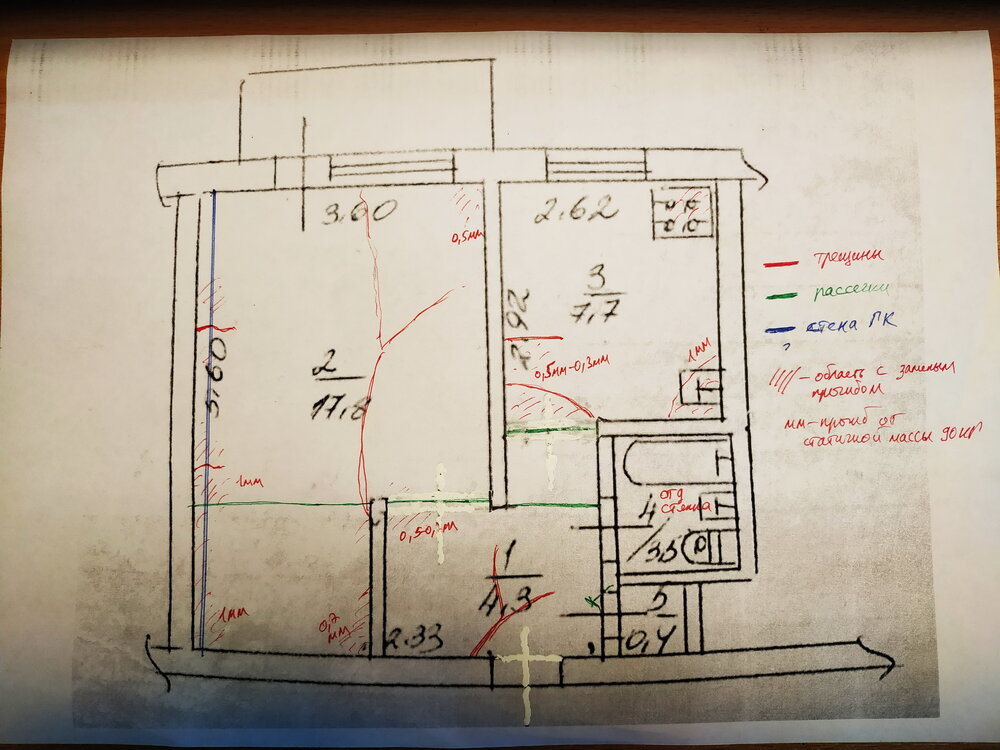 3.60
2.62
0,5мм
3
7,7
2.92
трещины
рассечки
стена ПК
?
5.60
2
17,8
0,5мм-0,3мм
1мм
//// - область с заметным
прогибом
мм-прогиб от
статичной массы 90 кг
1мм
4
3,5
отд
стенка
1
4,3
5
0,4
1мм
0,7
мм
2.33